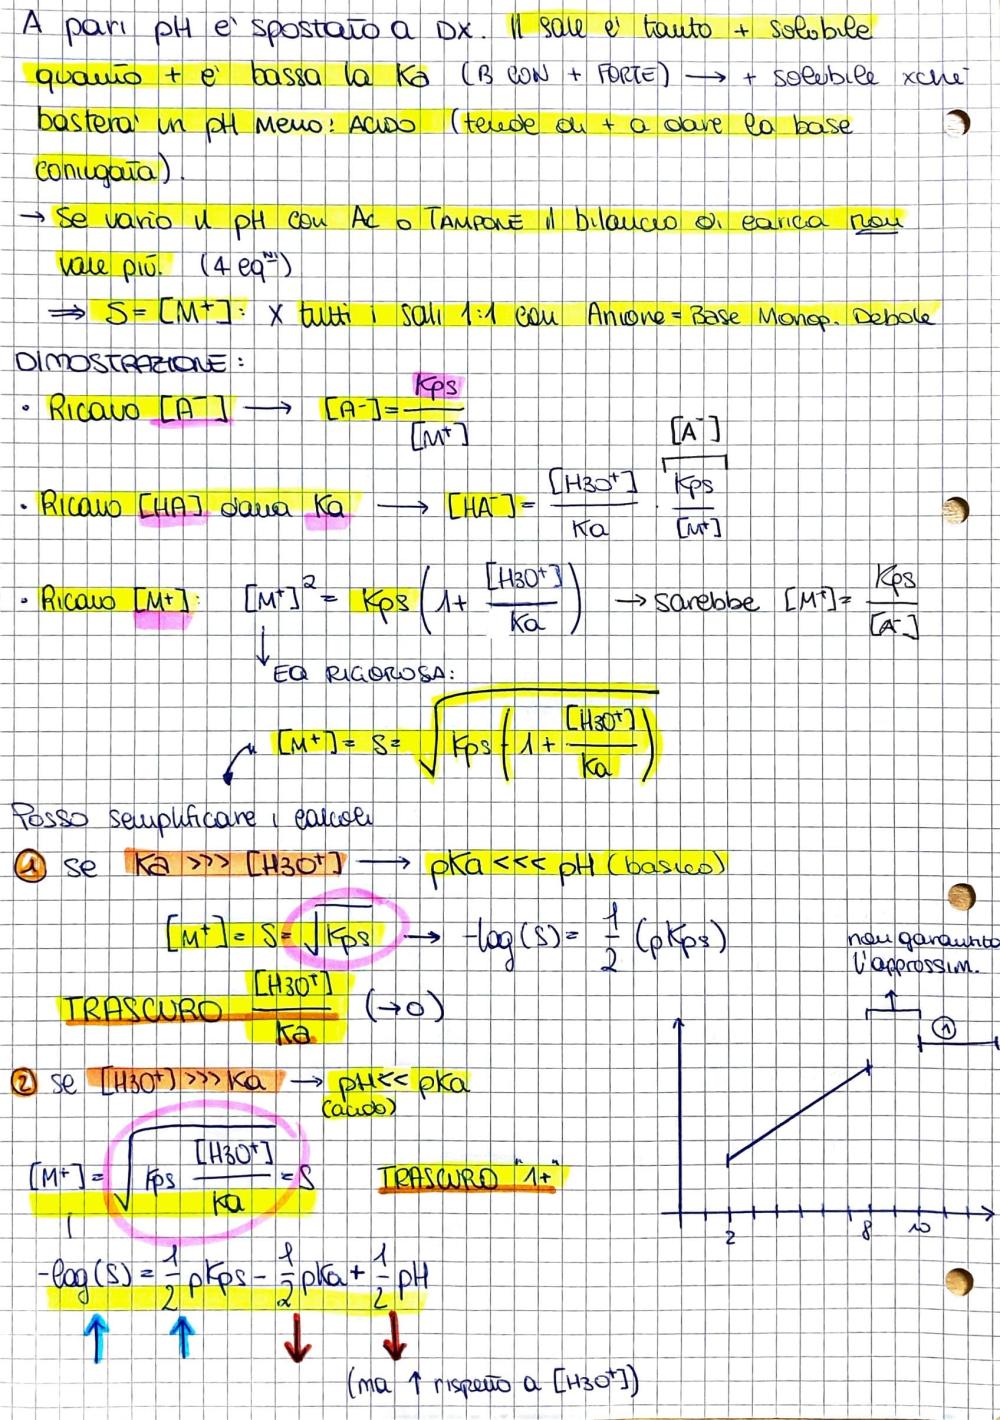 A pari pH è spostato a DX. Il sale è tanto + solubile
quanto + è bassa la Ka (B CON + FORTE) → + solubile xchè
basterà un pH Meno: ACIDO (tende di + a dare la base
coniugata).
→ Se vario il pH con Ac o TAMPONE il bilancio di carica non
vale più. (4 eq^NI)
⇒ S = [M⁺]: x tutti i sali 1:1 con Anione = Base Monop. Debole
DIMOSTRAZIONE:
• Ricavo [A⁻] → [A⁻] = Kps / [M⁺]
• Ricavo [HA] dalla Ka → [HA⁻] = [H3O⁺] / Ka · Kps / [M⁺]
[A⁻]
• Ricavo [M⁺]: [M⁺]² = Kps (1 + [H3O⁺] / Ka) → sarebbe [M⁺] = Kps / [A⁻]
↓ EQ RIGOROSA:
[M⁺] = S = √(Kps (1 + [H3O⁺] / Ka))
Posso semplificare i calcoli
1 se Ka >>> [H3O⁺] → pKa <<< pH (basico)
[M⁺] = S = √Kps → -log(S) = 1/2 (pKps)
TRASCURO [H3O⁺] / Ka (→0)
non garantito
l'approssim.
↑
1
2 8 10
2 se [H3O⁺] >>> Ka → pH << pKa
(acido)
[M⁺] = √(Kps [H3O⁺] / Ka) = S TRASCURO "1+"
-log(S) = 1/2 pKps - 1/2 pKa + 1/2 pH
↑ ↑ ↓ ↓
(ma ↑ rispetto a [H3O⁺])